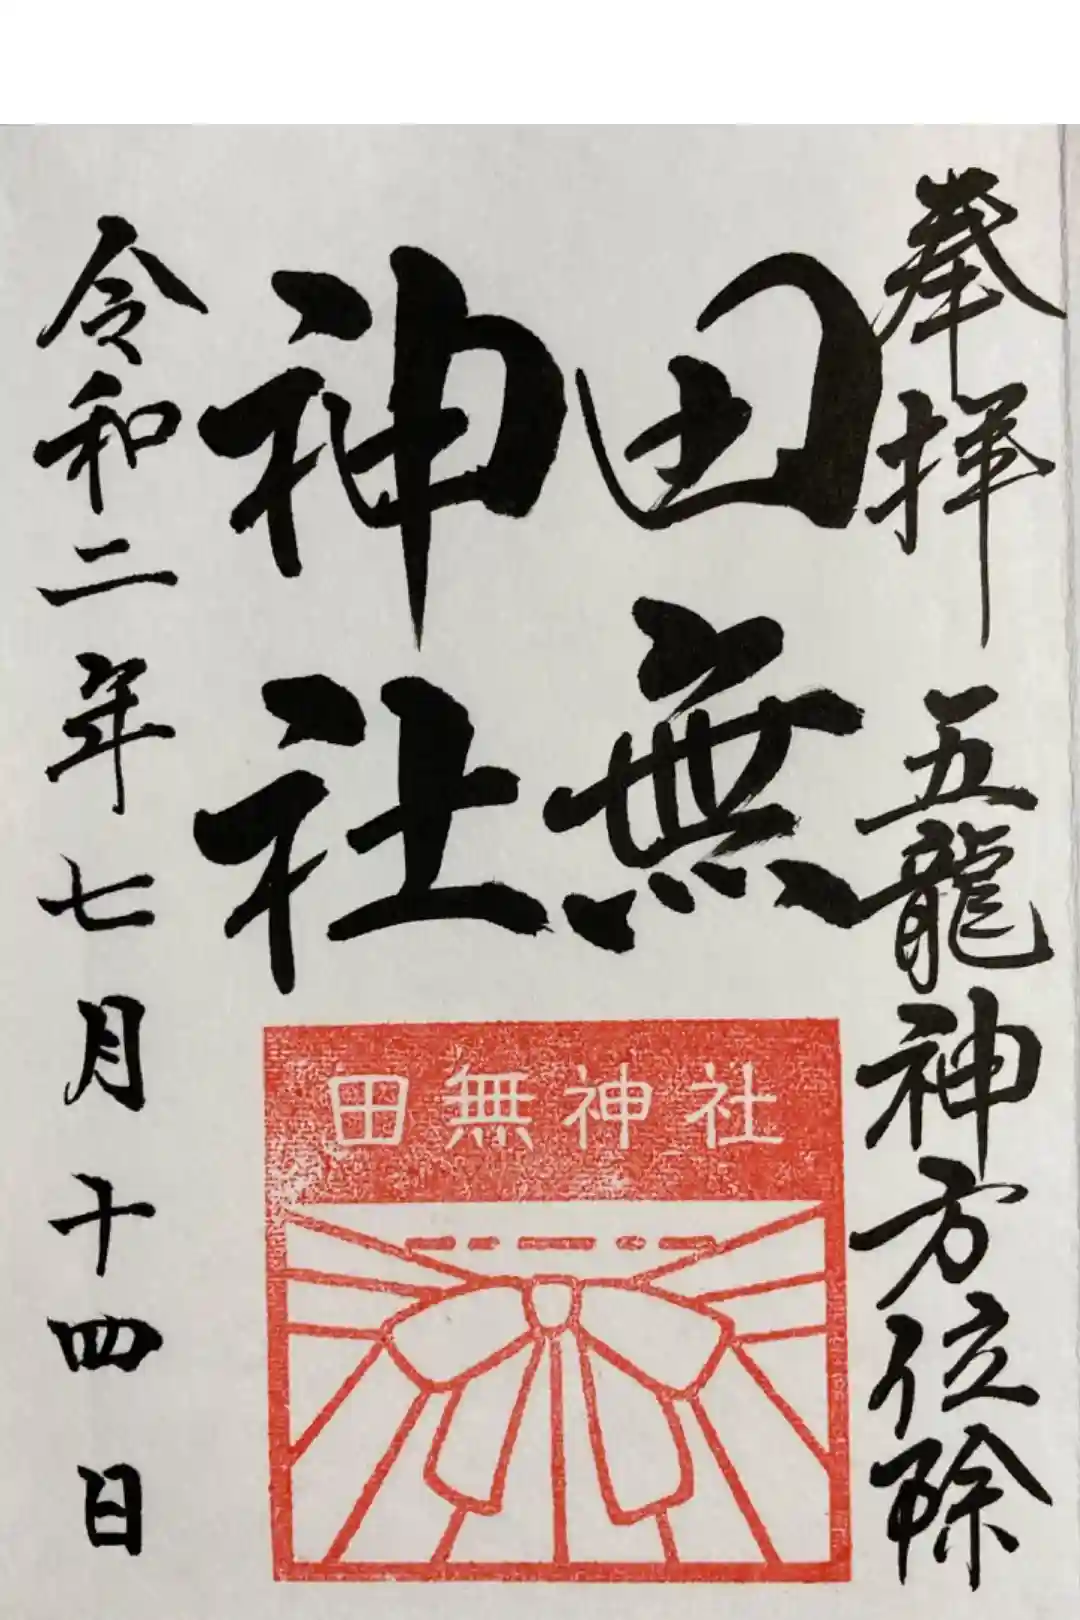 奉拝 五龍神方位除
田無
神社
田無神社
令和二年七月十四日